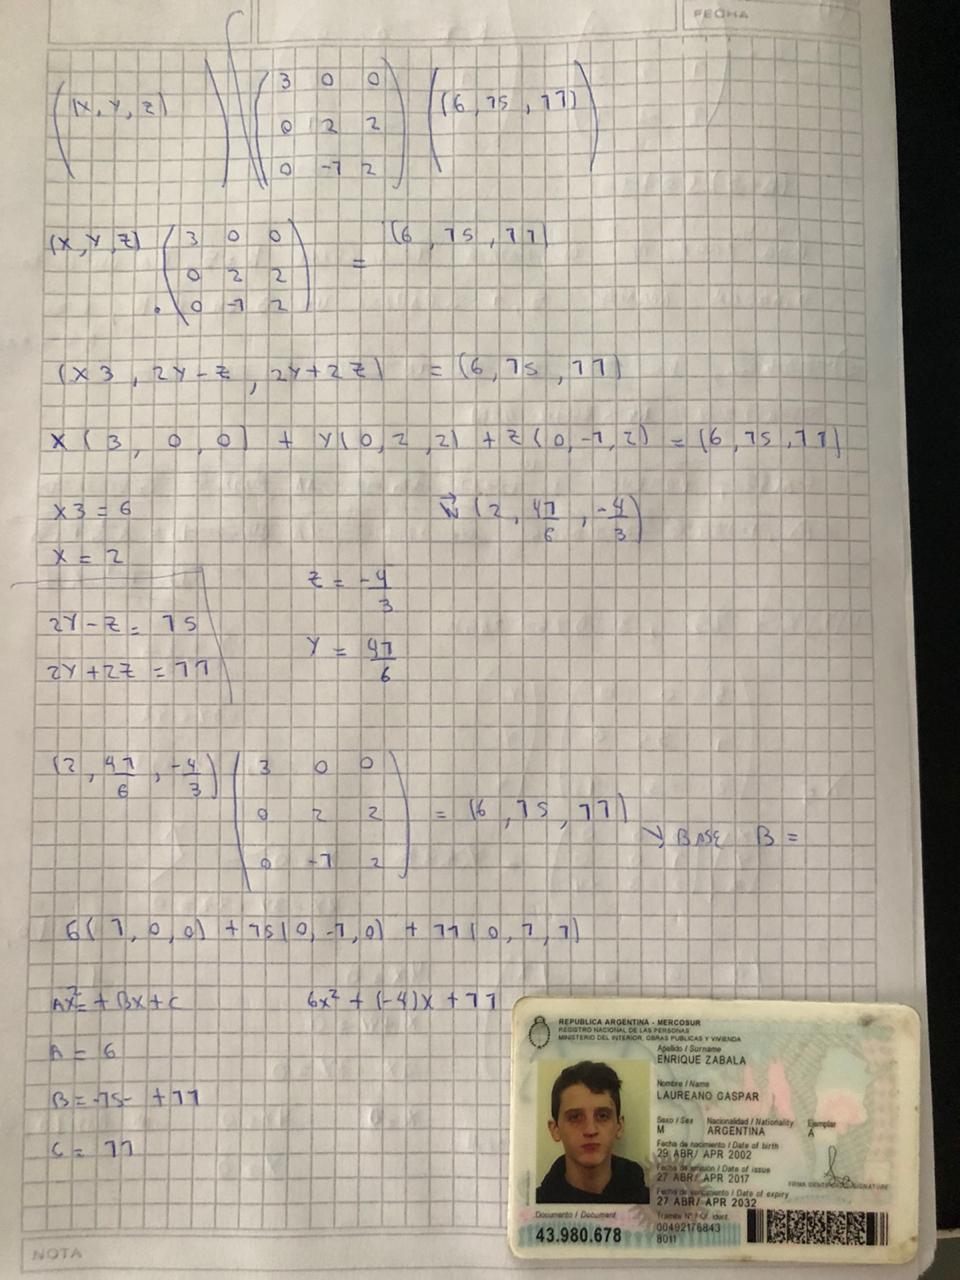 FECHA
(X, Y, Z) 3 0 0 (6, 15, 11)
0 2 2
0 -1 2
(X, Y, Z) 3 0 0 = (6, 15, 11)
0 2 2
0 -1 2
(X3, 2Y-Z, 2Y+2Z) = (6, 15, 11)
X(3, 0, 0) + Y(0, 2, 2) + Z(0, -1, 2) = (6, 15, 11)
X3 = 6
X = 2
2Y-Z = 15
2Y+2Z = 11
Z = -4/3
Y = 41/6
W (2, 41/6, -4/3)
(2, 41/6, -4/3) 3 0 0 = (6, 15, 11)
0 2 2
0 -1 2
BASE B =
6(1, 0, 0) + 15(0, -1, 0) + 11(0, 1, 1)
Ax² + Bx + C
6x² + (-4)x + 11
A = 6
B = -15 + 11
C = 11
NOTA
REPUBLICA ARGENTINA - MERCOSUR
REGISTRO NACIONAL DE LAS PERSONAS
MINISTERIO DEL INTERIOR, OBRAS PUBLICAS Y VIVIENDA
Apellido / Surname
ENRIQUE ZABALA
Nombre / Name
LAUREANO GASPAR
Sexo / Sex Nacionalidad / Nationality Ejemplar
M ARGENTINA A
Fecha de nacimiento / Date of birth
29 ABR/ APR 2002
Fecha de emisión / Date of issue
27 ABR/ APR 2017
Fecha de vencimiento / Date of expiry
27 ABR/ APR 2032
Documento / Document
43.980.678
Trámite Nº / Of. ident.
00492176843
8011